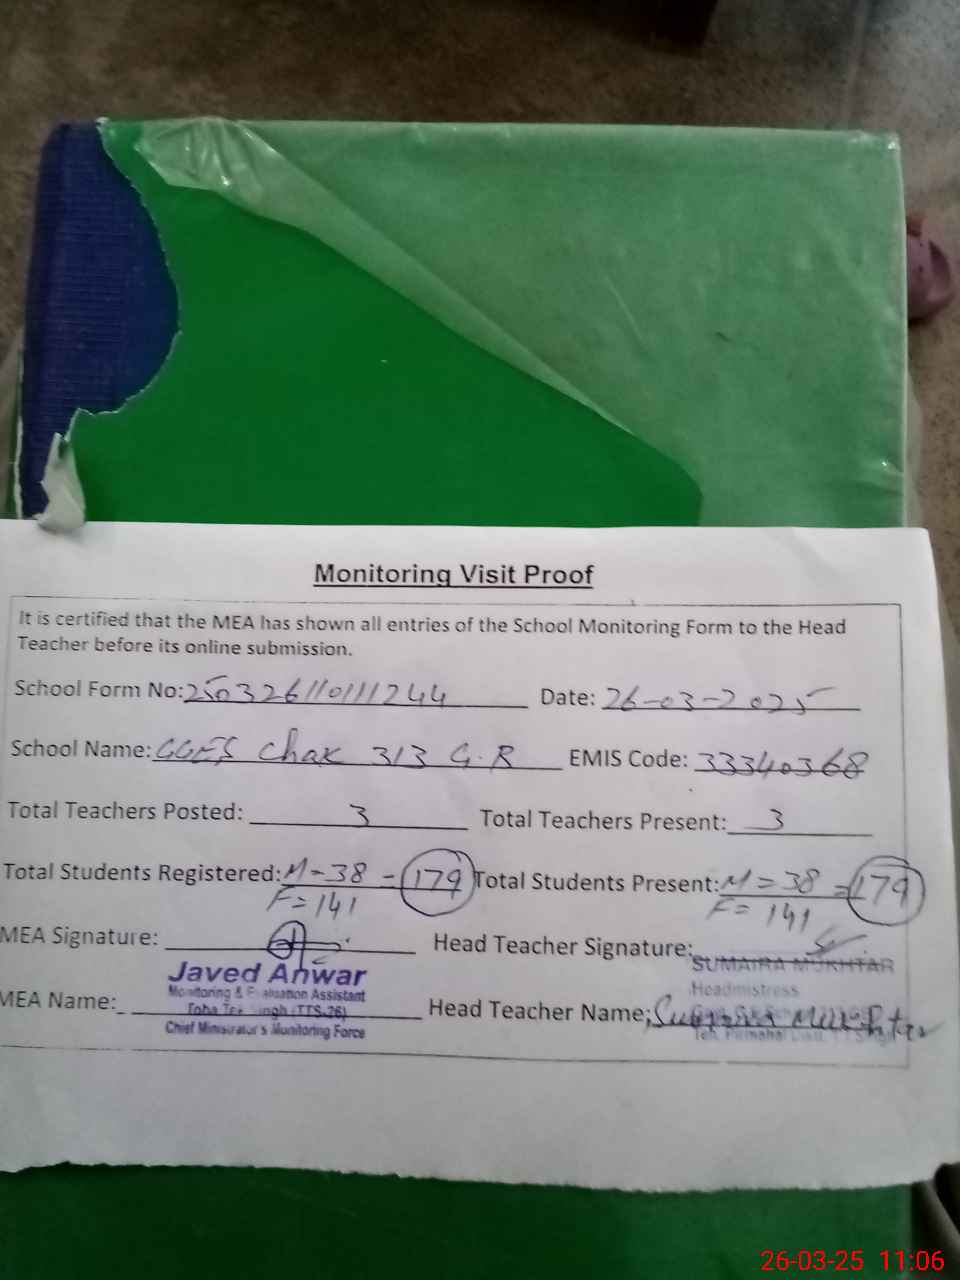 Monitoring Visit Proof
It is certified that the MEA has shown all entries of the School Monitoring Form to the Head
Teacher before its online submission.
School Form No: 250326110111244 Date: 26-03-2025
School Name: GGES Chak 313 G.B EMIS Code: 33340368
Total Teachers Posted: 3 Total Teachers Present: 3
Total Students Registered: M-38 - 179 Total Students Present: M = 38 = 179
F = 141 F = 141
MEA Signature: Head Teacher Signature:
Javed Anwar SUMAIRA MUKHTAR
Monitoring & Evaluation Assistant Headmistress
MEA Name: Toba Tek Singh (TTS-26) Head Teacher Name: Sumaira Mukhtar
Chief Minister's Monitoring Force
26-03-25 11:06